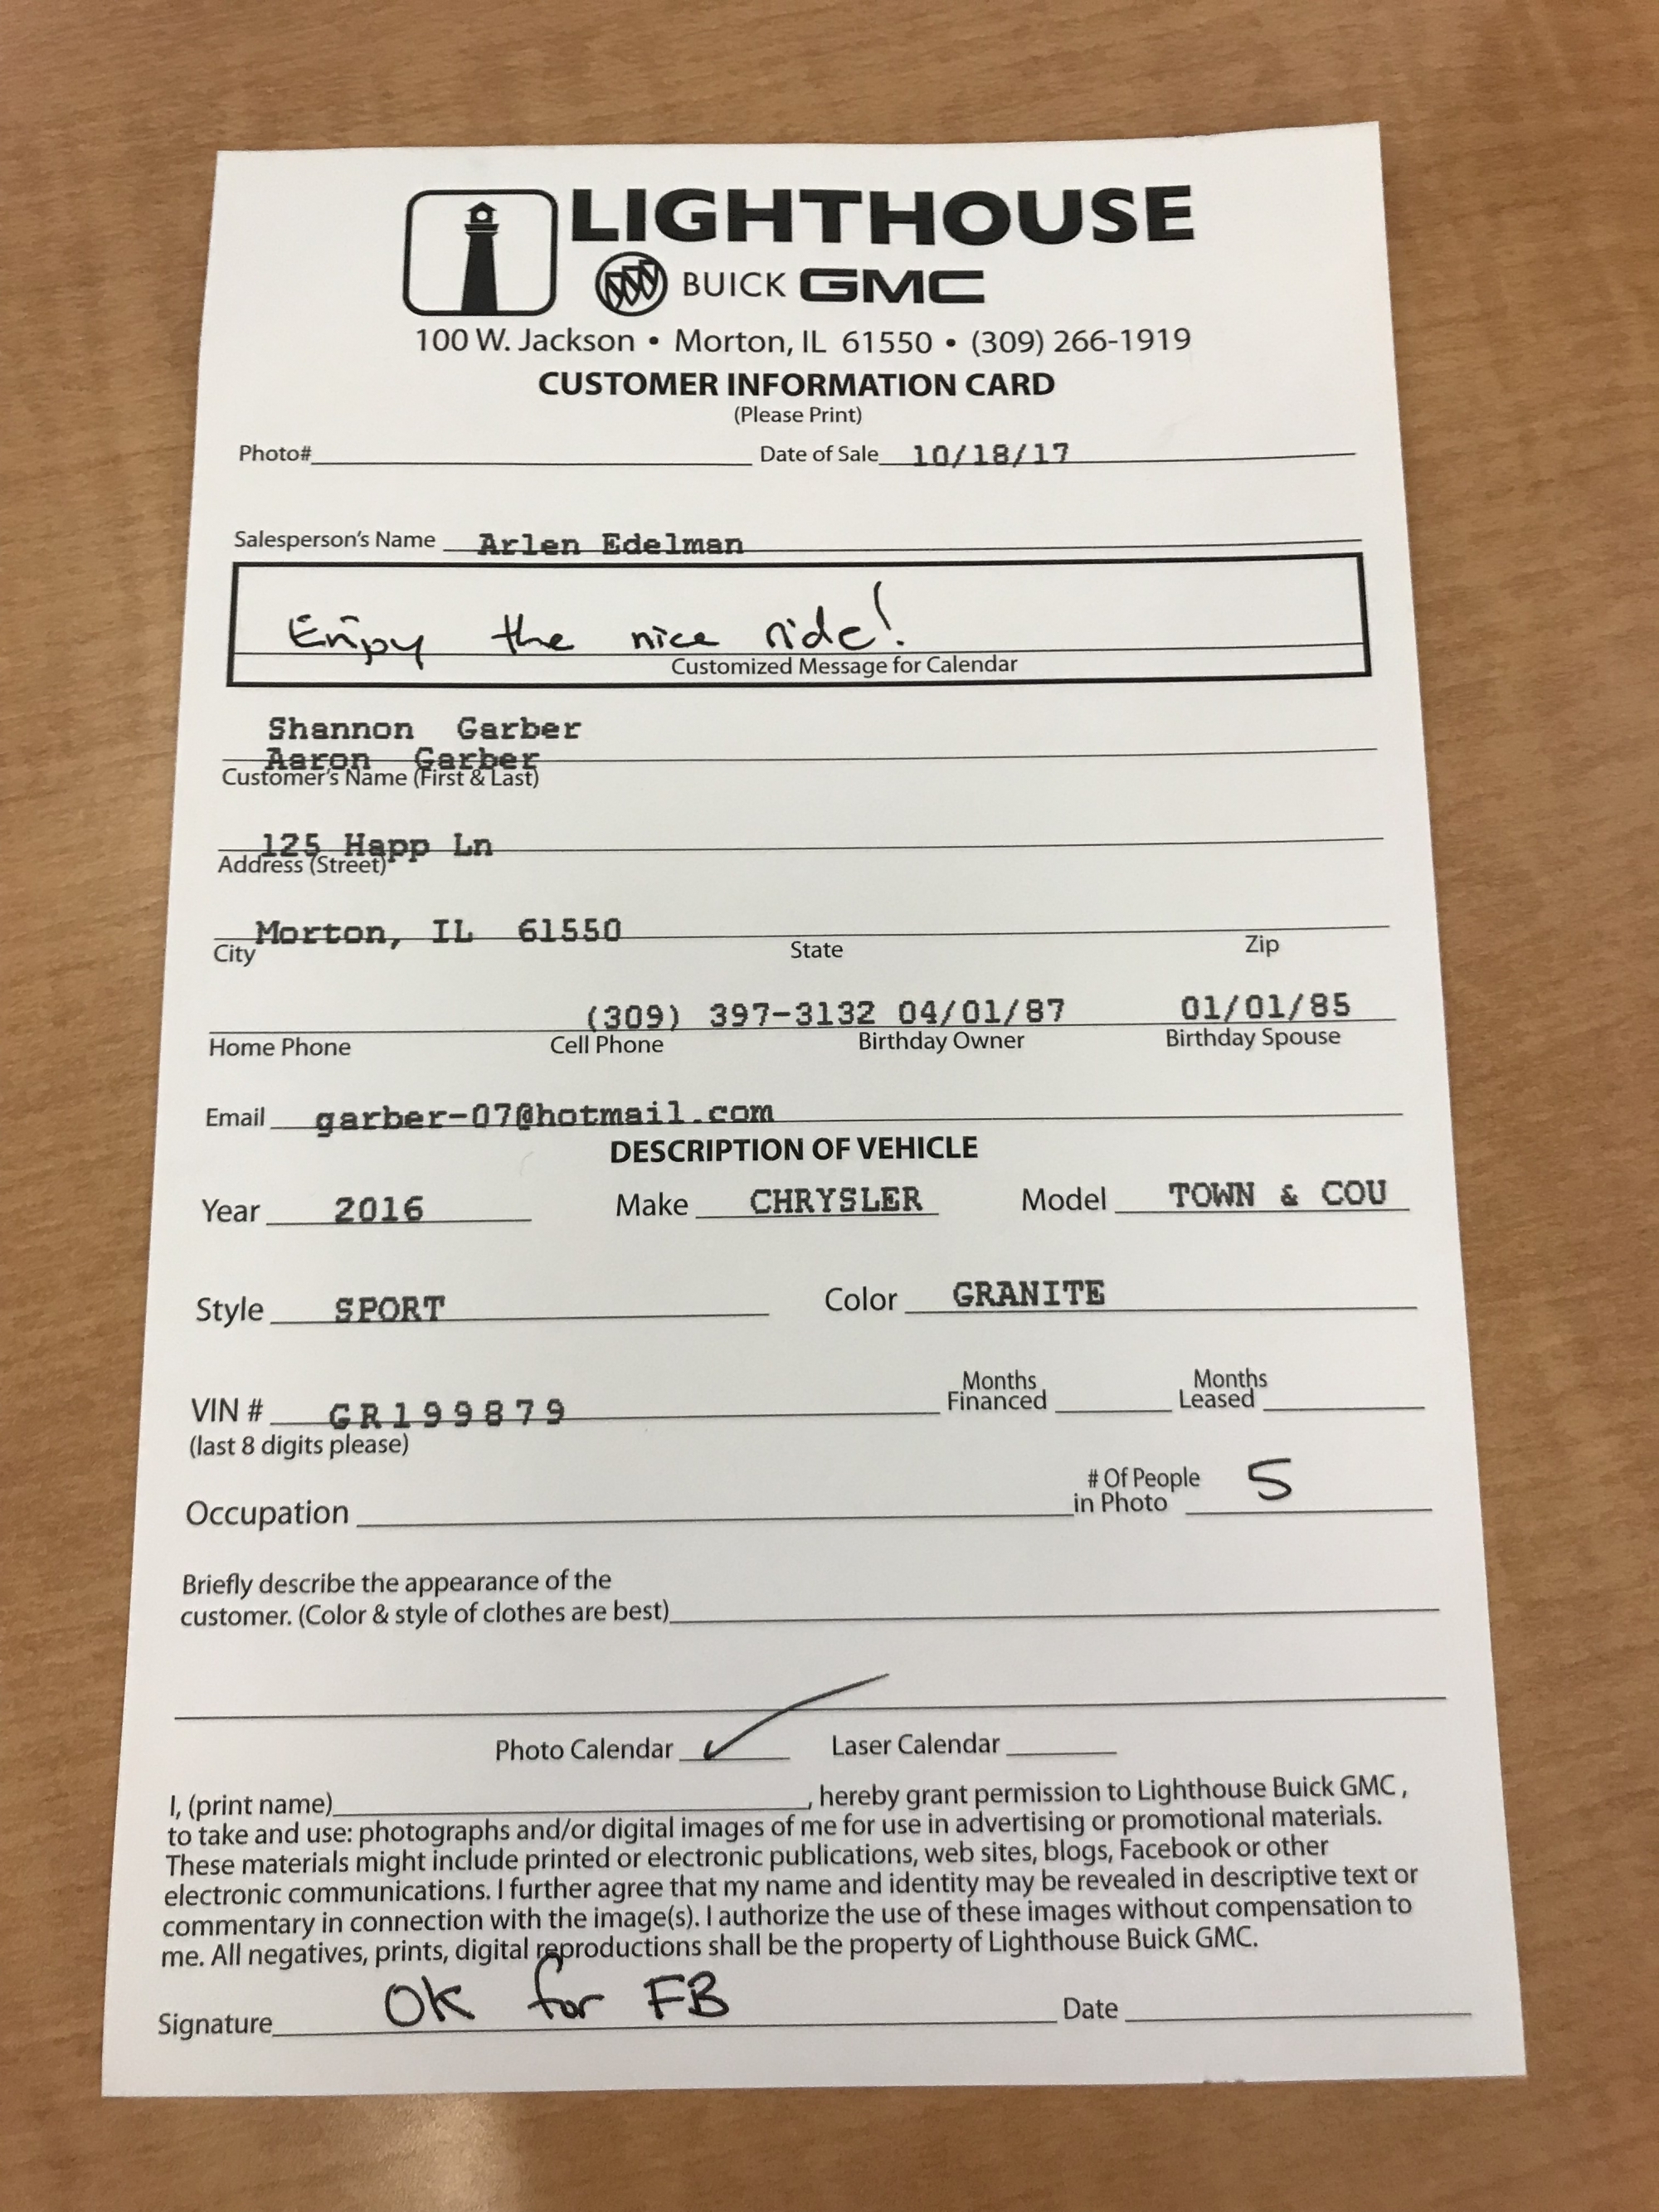 LIGHTHOUSE
BUICK GMC
100 W. Jackson • Morton, IL 61550 • (309) 266-1919
CUSTOMER INFORMATION CARD
(Please Print)
Photo# Date of Sale 10/18/17
Salesperson's Name Arlen Edelman
Enjoy the nice ride!
Customized Message for Calendar
Shannon Garber
Aaron Garber
Customer's Name (First & Last)
125 Happ Ln
Address (Street)
Morton, IL 61550
City State Zip
(309) 397-3132 04/01/87 01/01/85
Home Phone Cell Phone Birthday Owner Birthday Spouse
Email garber-07@hotmail.com
DESCRIPTION OF VEHICLE
Year 2016 Make CHRYSLER Model TOWN & COU
Style SPORT Color GRANITE
VIN # GR199879 Months Financed Months Leased
(last 8 digits please)
Occupation # Of People in Photo 5
Briefly describe the appearance of the
customer. (Color & style of clothes are best)
Photo Calendar ✓ Laser Calendar
I, (print name) , hereby grant permission to Lighthouse Buick GMC ,
to take and use: photographs and/or digital images of me for use in advertising or promotional materials.
These materials might include printed or electronic publications, web sites, blogs, Facebook or other
electronic communications. I further agree that my name and identity may be revealed in descriptive text or
commentary in connection with the image(s). I authorize the use of these images without compensation to
me. All negatives, prints, digital reproductions shall be the property of Lighthouse Buick GMC.
Signature OK for FB Date